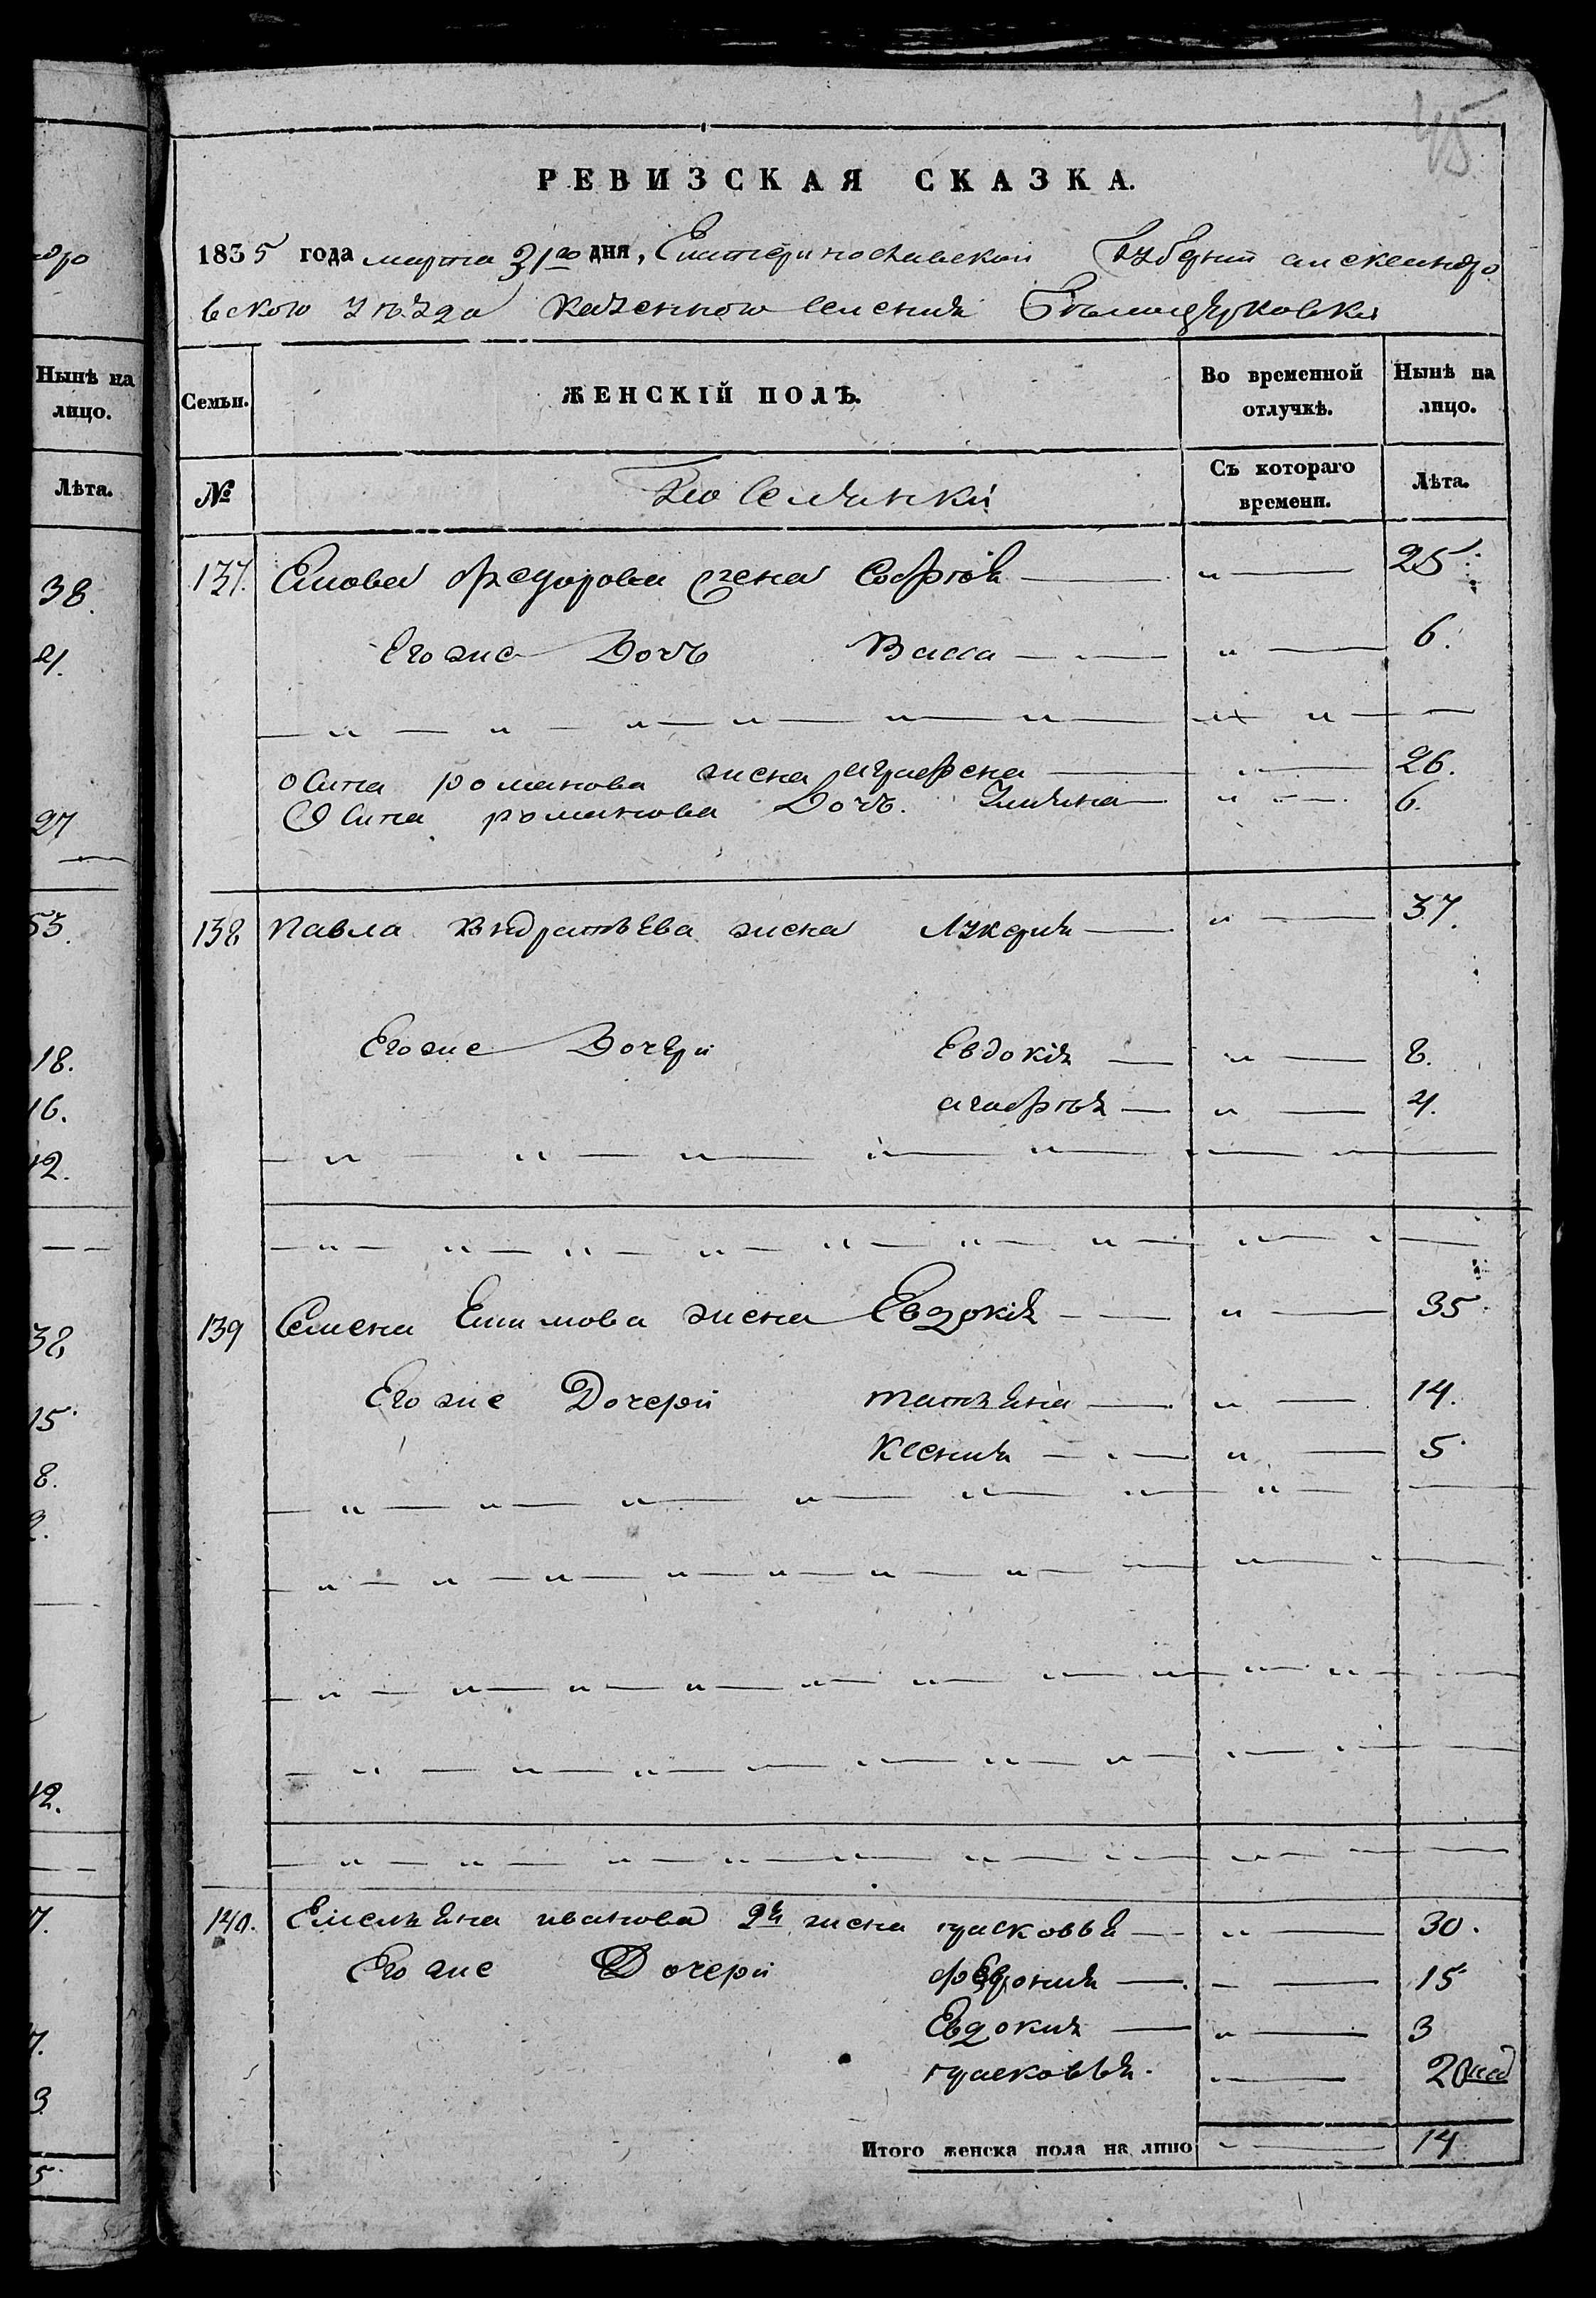 45
РЕВИЗСКАЯ СКАЗКА.
1835 года марта 31го дня, Екатеринославской Губернии александро
вского уѣзда казенного селения Бѣлоцерковки
Семьи. ЖЕНСКІЙ ПОЛЪ. Во временной отлучкѣ. Ныне на лицо.
№ Поселянки Съ котораго времени. Лѣта.
137. федорова жена Софія — „ — 25
Егоже Дочь Васса — „ — 6.
осипа романова жена аграфена — „ — 26.
Осипа романова Дочь. Ульяна — „ — 6.
138 Павла Кндратьева жена Лукерия — „ — 37.
Егоже Дочери Евдокія — „ — 8.
агафія — „ — 4.
139 Семена Ефимова жена Евдокія — „ — 35
Егоже Дочери татьяна — „ — 14.
Ксения — „ — 5
140. Емельяна иванова 2я жена прасковья — „ — 30.
Егоже Дочери феврония — „ — 15
Евдокия — „ — 3
прасковья. „ — 2 нед
Итого женска пола на лицо „ — 14
Нынѣ на
лицо.
Лѣта.
38.
4.
27
53.
18.
16.
12.
38
15
8.
2.
12.
7.
7.
3
5